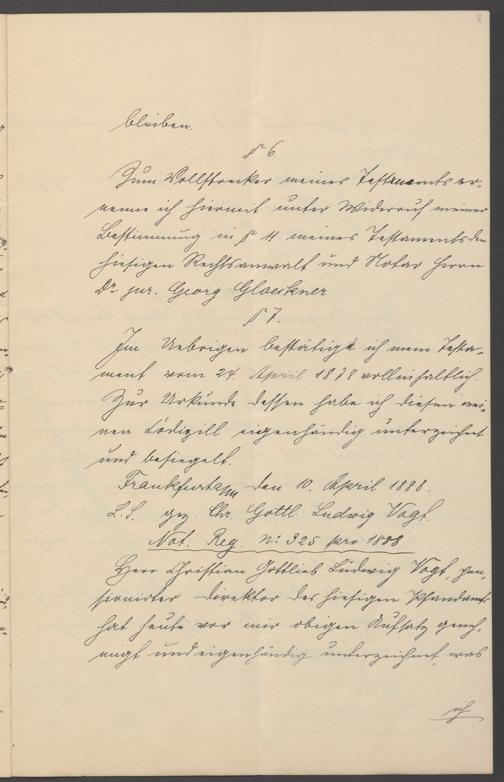 8
bleiben.
§ 6.
Zum Vollstrecker meines Testaments er-
nenne ich hiermit unter Widerruf meiner
Bestimmung in § 11 meines Testaments den
hiesigen Rechtsanwalt und Notar Herrn
Dr. jur. Georg Gloeckner
§ 7.
Im Uebrigen bestätige ich mein Testa-
ment vom 24. April 1878 vollinhaltlich.
Zur Urkunde dessen habe ich diesen mei-
nen Codizill eigenhändig unterzeichnet
und besiegelt.
Frankfurt a/m den 10. April 1888.
L.S. gez. Chr. Gottl. Ludwig Vogt.
Not. Reg. No. 325 pro 1888
Herr Christian Gottlieb Ludwig Vogt, pen-
sionirter Direktor des hiesigen Pfandamts
hat heute vor mir obigen Aufsatz geneh-
migt und eigenhändig unterzeichnet, was
ich